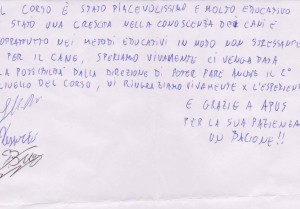 IL CORSO È STATO PIACEVOLISSIMO E MOLTO EDUCATIVO
STATO UNA CRESCITA NELLA CONOSCENZA DEI CANI E
SOPRATTUTTO NEI METODI EDUCATIVI IN MODO NON STRESSANTE
PER IL CANE, SPERIAMO VIVAMENTE CI VENGA DATA
LA POSSIBILITÀ DALLA DIREZIONE DI POTER FARE ANCHE IL 2°
LIVELLO DEL CORSO, VI RINGRAZIAMO VIVAMENTE X L'ESPERIENZA
E GRAZIE A
PER LA SUA PAZIENZA
UN BACIONE!!